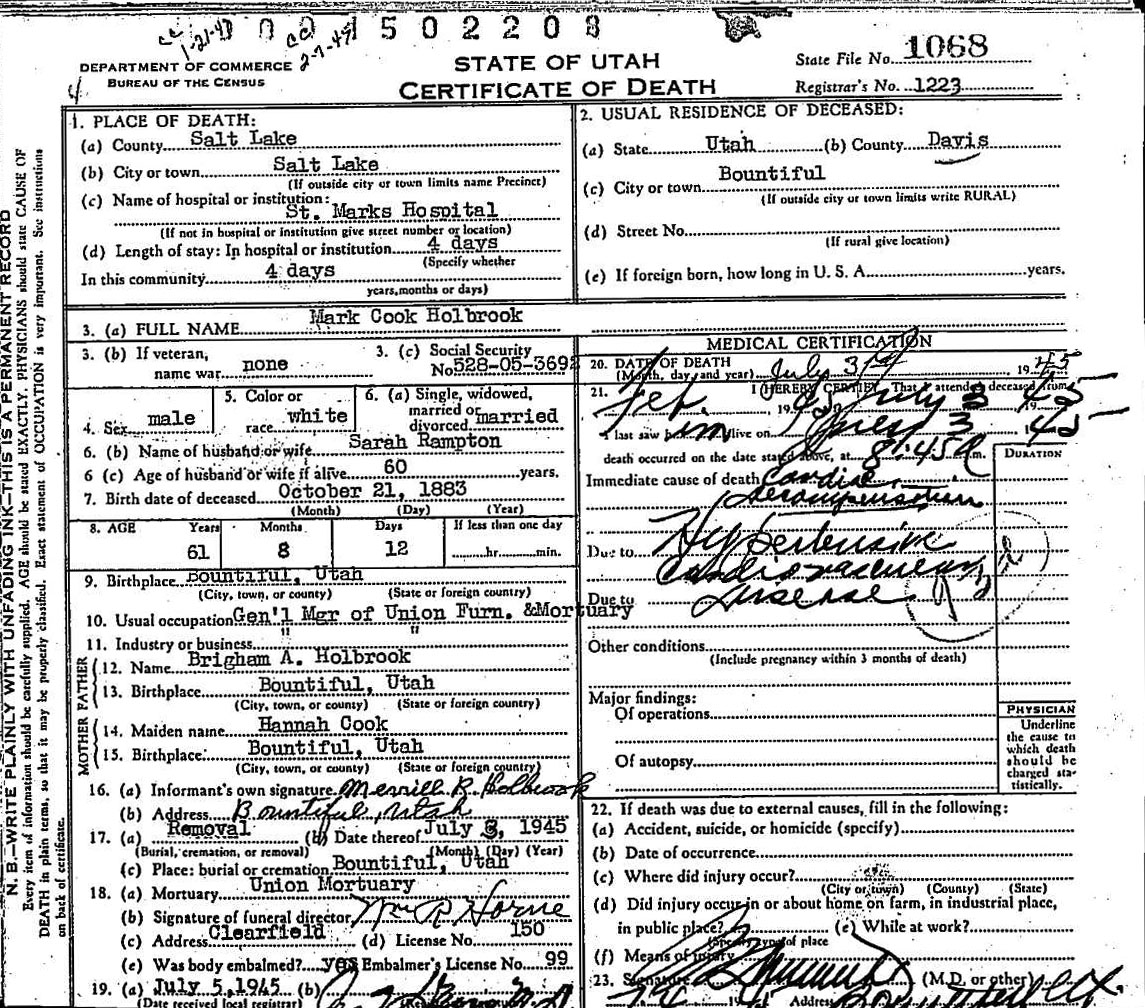 cc 1-21-49
cc 2-7-45
502208
DEPARTMENT OF COMMERCE
BUREAU OF THE CENSUS
STATE OF UTAH
CERTIFICATE OF DEATH
State File No. 1068
Registrar's No. 1223
N. B.—WRITE PLAINLY WITH UNFADING INK—THIS IS A PERMANENT RECORD
Every item of information should be carefully supplied. AGE should be stated EXACTLY. PHYSICIANS should state CAUSE OF
DEATH in plain terms, so that it may be properly classified. Exact statement of OCCUPATION is very important. See instructions
on back of certificate.
1. PLACE OF DEATH:
(a) County Salt Lake
(b) City or town Salt Lake
(If outside city or town limits name Precinct)
(c) Name of hospital or institution:
St. Marks Hospital
(If not in hospital or institution give street number or location)
(d) Length of stay: In hospital or institution 4 days
(Specify whether
In this community 4 days
years, months or days)
2. USUAL RESIDENCE OF DECEASED:
(a) State Utah (b) County Davis
(c) City or town Bountiful
(If outside city or town limits write RURAL)
(d) Street No.
(If rural give location)
(e) If foreign born, how long in U. S. A. years.
3. (a) FULL NAME Mark Cook Holbrook
3. (b) If veteran, name war none
3. (c) Social Security No. 528-05-3692
4. Sex male
5. Color or race white
6. (a) Single, widowed, married or divorced married
6. (b) Name of husband or wife Sarah Rampton
6 (c) Age of husband or wife if alive 60 years.
7. Birth date of deceased October 21, 1883
(Month) (Day) (Year)
8. AGE Years Months Days If less than one day
61 8 12 hr. min.
9. Birthplace Bountiful, Utah
(City, town, or county) (State or foreign country)
10. Usual occupation Gen'l Mgr of Union Furn. &Mortuary
11. Industry or business " "
FATHER
12. Name Brigham A. Holbrook
13. Birthplace Bountiful, Utah
(City, town, or county) (State or foreign country)
MOTHER
14. Maiden name Hannah Cook
15. Birthplace Bountiful, Utah
(City, town, or county) (State or foreign country)
16. (a) Informant's own signature Merrill R Holbrook
(b) Address Bountiful, Utah
17. (a) Removal (b) Date thereof July 3, 1945
(Burial, cremation, or removal) (Month) (Day) (Year)
(c) Place: burial or cremation Bountiful, Utah
18. (a) Mortuary Union Mortuary
(b) Signature of funeral director Wm R Horne
(c) Address Clearfield (d) License No. 150
(e) Was body embalmed? yes Embalmer's License No. 99
19. (a) July 5, 1945 (b)
(Date received local registrar)
MEDICAL CERTIFICATION
20. DATE OF DEATH July 3rd 1945
(Month, day, and year)
21. I HEREBY CERTIFY, That I attended deceased from
Feb. 19 July 3 1945
I last saw him alive on July 3 1945
death occurred on the date stated above, at 8:45 P m.
DURATION
Immediate cause of death Cardiac
decompensation
Due to Hypertensive
cardiovascular
Due to disease
Other conditions
(Include pregnancy within 3 months of death)
Major findings:
Of operations
Of autopsy
PHYSICIAN
Underline
the cause to
which death
should be
charged sta-
tistically.
22. If death was due to external causes, fill in the following:
(a) Accident, suicide, or homicide (specify)
(b) Date of occurrence
(c) Where did injury occur?
(City or town) (County) (State)
(d) Did injury occur in or about home on farm, in industrial place,
in public place? (e) While at work?
(Specify type of place
(f) Means of injury
23. Signature (M.D. or other)
Address